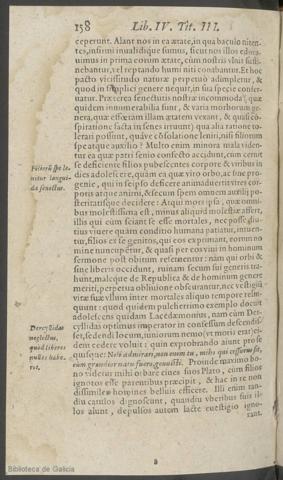 158 Lib. IV. Tit. III.
ceperunt. Alant nos in ea ætate, in qua baculo niten-
tes, infirmi inualidique sumus, sicut nos illos educa-
uimus in prima eorum ætate, cùm nostris vlnis susti-
nebantur, vel reptando humi niti conabantur. Et hoc
pacto vicissitudo naturæ perpetuò adimpletur, &
quod in simplici genere nequit, in sua specie conser-
uatur. Præterea senectutis nostræ incommoda, quæ
quidem innumerabilia sunt, & varia morborum ge-
nera, quæ effœtam illam ætatem vexant, & quasi cõ-
spiratione facta in senes irruunt) qua alia ratione to-
lerari possunt, quàve cõsolatione leniri, nisi filiorum
spe atque auxilio? Multo enim minora videntur
ea quæ patri senio confecto accidunt, cum cernit
se deficiente filios pubescentes corpore & viribus in
dies adolescere, quàm ea quæ viro orbo, ac sine pro-
genie, qui in seipso deficere animaduertit vires cor-
poris atque animi, & secum spem omnem auxilij po-
steritatisque decidere: Atqui mors ipsa, quæ omni-
bus molestissima est, minus aliquid molestiæ affert,
illis qui cùm sciant se esse mortales, nec posse diu-
tius viuere quàm conditio humana patiatur, intuen-
tur, filios ex se genitos, qui eos exprimant, eorum no-
mine nuncupétur, & quasi per eos viui in hominum
sermone post obitum reseruentur: nam qui orbi &
sine liberis occidunt, ruinam secum sui generis tra-
hunt, maleque de Republica & de hominum genere
meriti, perpetua obliuione obscurantur, nec vestigiũ
vitæ suæ vllum inter mortales aliquo tempore relin-
quunt: quod quidem pulcherrimo exemplo docuit
adolescens quidam Lacedæmonius, nam cùm Der-
cyllidas optimus imperator in consessum descendis-
set, sedendi locum, iuniorum nemo (vt moris erat) ei-
dem cedere voluit: quin exprobrando aiunt pro se
quisque: Noli admirari, non enim tu, mihi qui cessurus sit,
cùm grandior natu fuero, genuisti. Proinde maximo bo-
no videtur mihi orbare ciues suos Plato, cùm filios
ignotos esse parentibus præcipit, & hac in re non
dissimiles hominos belluis efficere. Illi enim tan-
diu catulos dignoscunt, quandiu vberibus suis il-
los alunt, depulsos autem lacte cuestigio igno-
rant.
Filiorũ spe le-
nitur langui-
da senectus.
Dercyllidas
neglectus,
quod liberos
nullos habe-
ret.
Biblioteca de Galicia